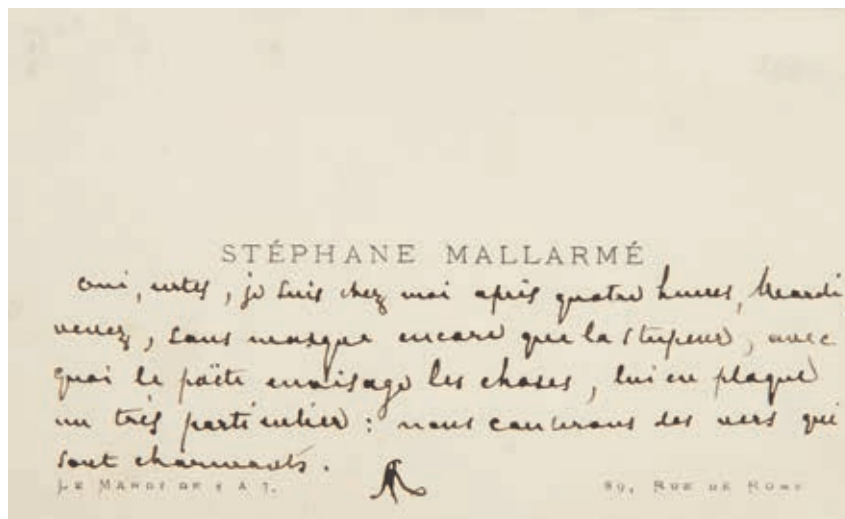 STÉPHANE MALLARMÉ
oui, certes, je suis chez moi après quatre heures, Mardi
venez, sans masque encore que la stupeur, avec
quoi le poëte envisage les choses, lui en plaque
un très particulier : nous causerons des vers qui
sont charmants.
LE MARDI DE 4 A 7.
89, RUE DE ROME